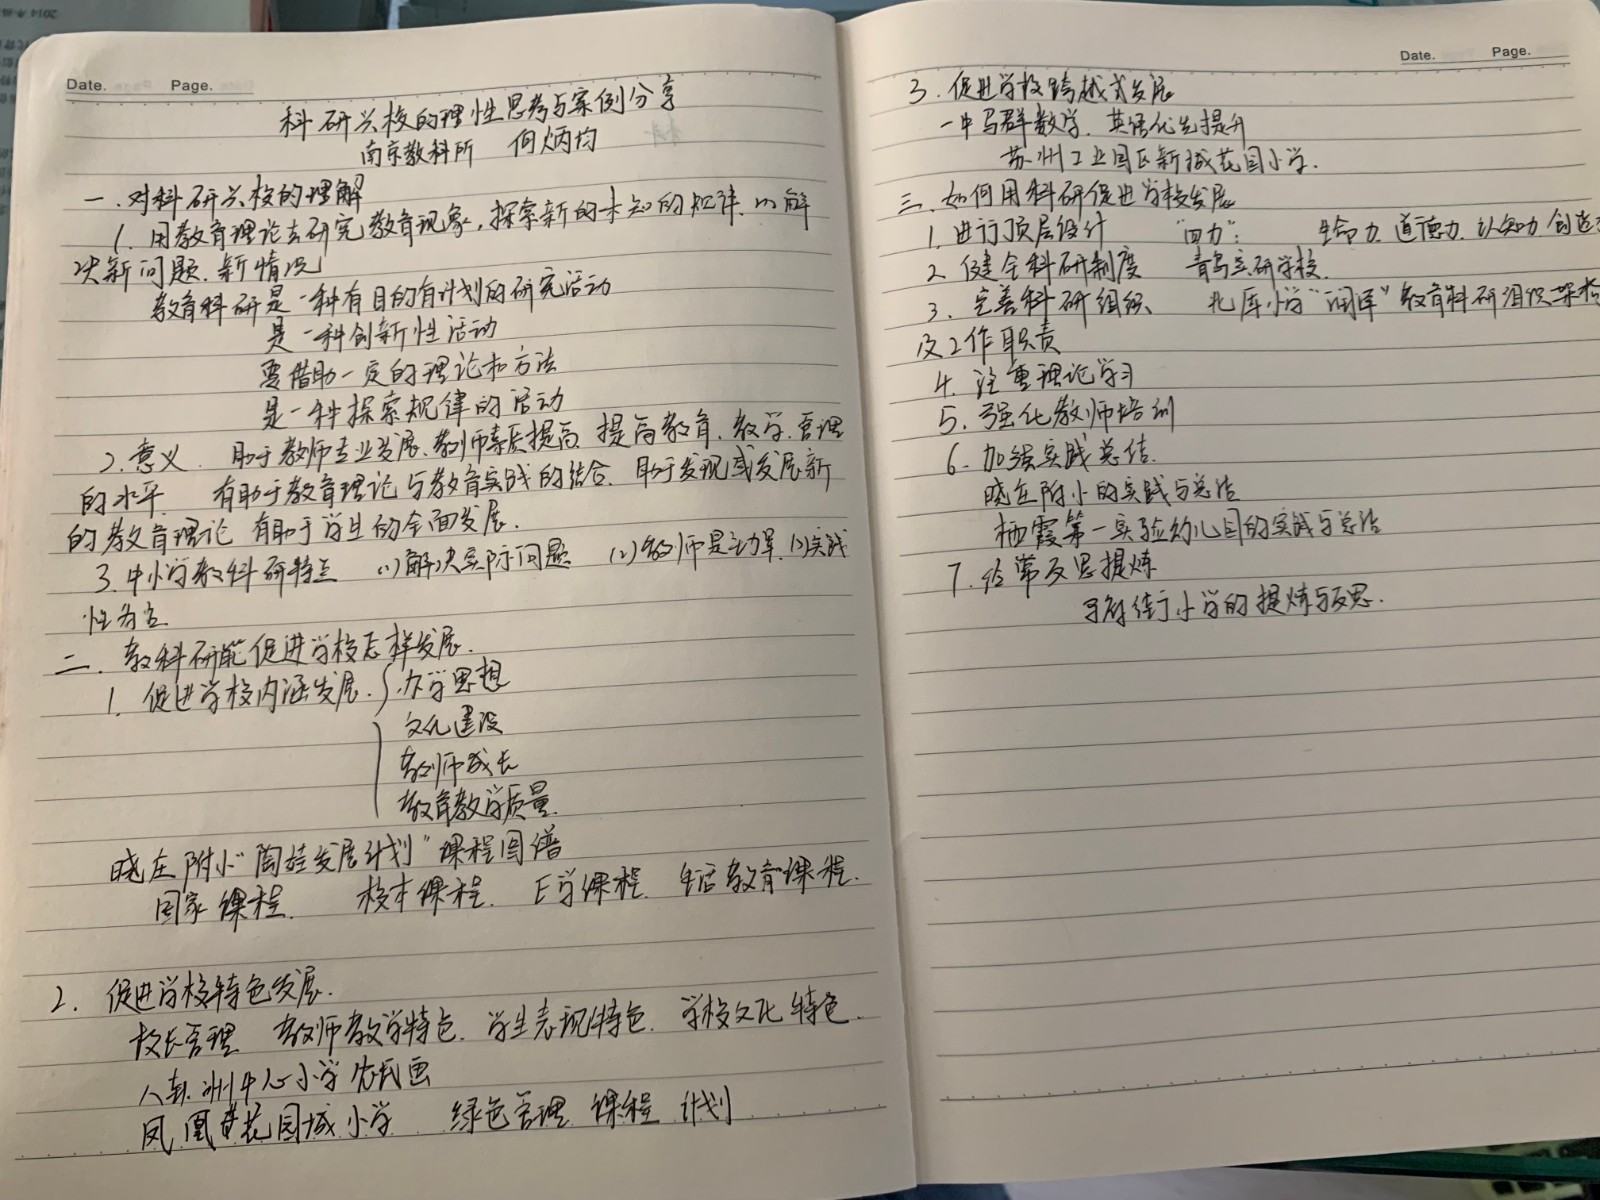 Date. Page.
科研兴校的理性思考与案例分享
南京教科所 何炳均
一.对科研兴校的理解
1. 用教育理论去研究教育现象,探索新的未知的规律.以解
决新问题.新情况
教育科研是一种有目的有计划的研究活动
是一科创新性活动
要借助一定的理论和方法
是一种探索规律的活动
2.意义. 助于教师专业发展.教师素质提高.提高教育.教学.管理
的水平. 有助于教育理论与教育实践的结合.助于发现或发展新
的教育理论 有助于学生的全面发展.
3.中小学教科研特点 (1)解决实际问题 (2)教师是主力军.(3)实践
性为主
二. 教科研能促进学校怎样发展.
1. 促进学校内涵发展. 办学思想
文化建设
教师成长
教育教学质量.
晓庄附小"陶娃发展计划"课程图谱
国家课程. 校本课程. E学课程. 生活教育课程.
2. 促进学校特色发展.
校长管理 教师教学特色. 学生表现特色. 学校文化特色.
八卦洲中心小学农民画
凤凰花园城小学 绿色管理 课程 计划
Date. Page.
3.促进学校跨越式发展
马群数学.英语化先提升
苏州工业园区新城花园小学.
三.如何用科研促进学校发展
1.进行顶层设计 "四力": 生命力.道德力.认知力.创造
2.健全科研制度 研学校.
3.完善科研组织. 北库小学"润库"教育科研组织架构
及工作职责
4.注重理论学习
5.强化教师培训
6.加强实践总结.
晓庄附小的实践与总结
栖霞第一实验幼儿园的实践与总结
7.经常反思提炼
街小学的提炼与反思.